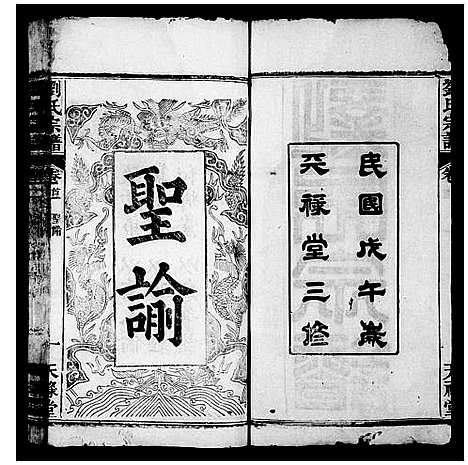 民國戊午歲
天祿堂三修
聖諭
劉氏宗譜
卷首 聖諭
一
天祿堂